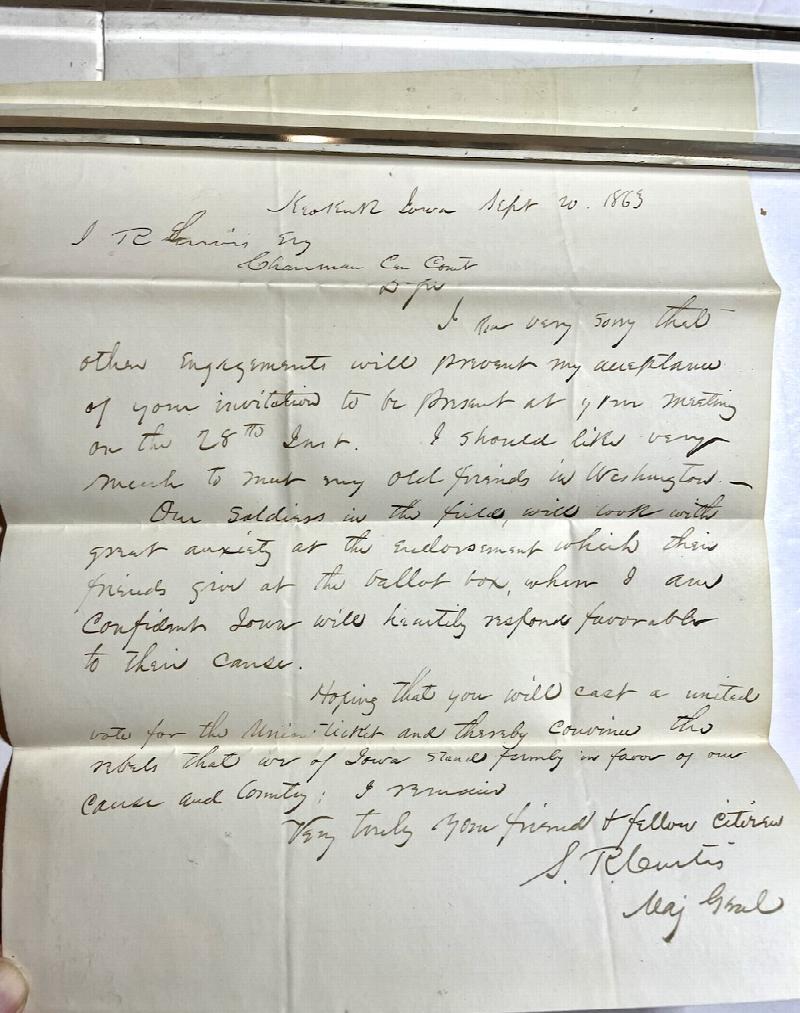 Keokuk Iowa Sept 20. 1863
J R Esq
Chairman Cen Comt
D Sir
I am very sorry that
other Engagements will prevent my acceptance
of your invitation to be present at your meeting
on the 28th Inst. I should like very
much to meet my old friends in Washington. —
Our Soldiers in the field, will look with
great anxiety at the endorsement which their
friends give at the ballot box, where I am
Confident Iowa will heartily respond favorable
to their cause.
Hoping that you will cast a united
vote for the Union ticket and thereby convince the
rebels that we of Iowa stand firmly in favor of our
cause and Country; I remain
Very truly your friend & fellow citizen
S. R. Curtis
Maj Genl